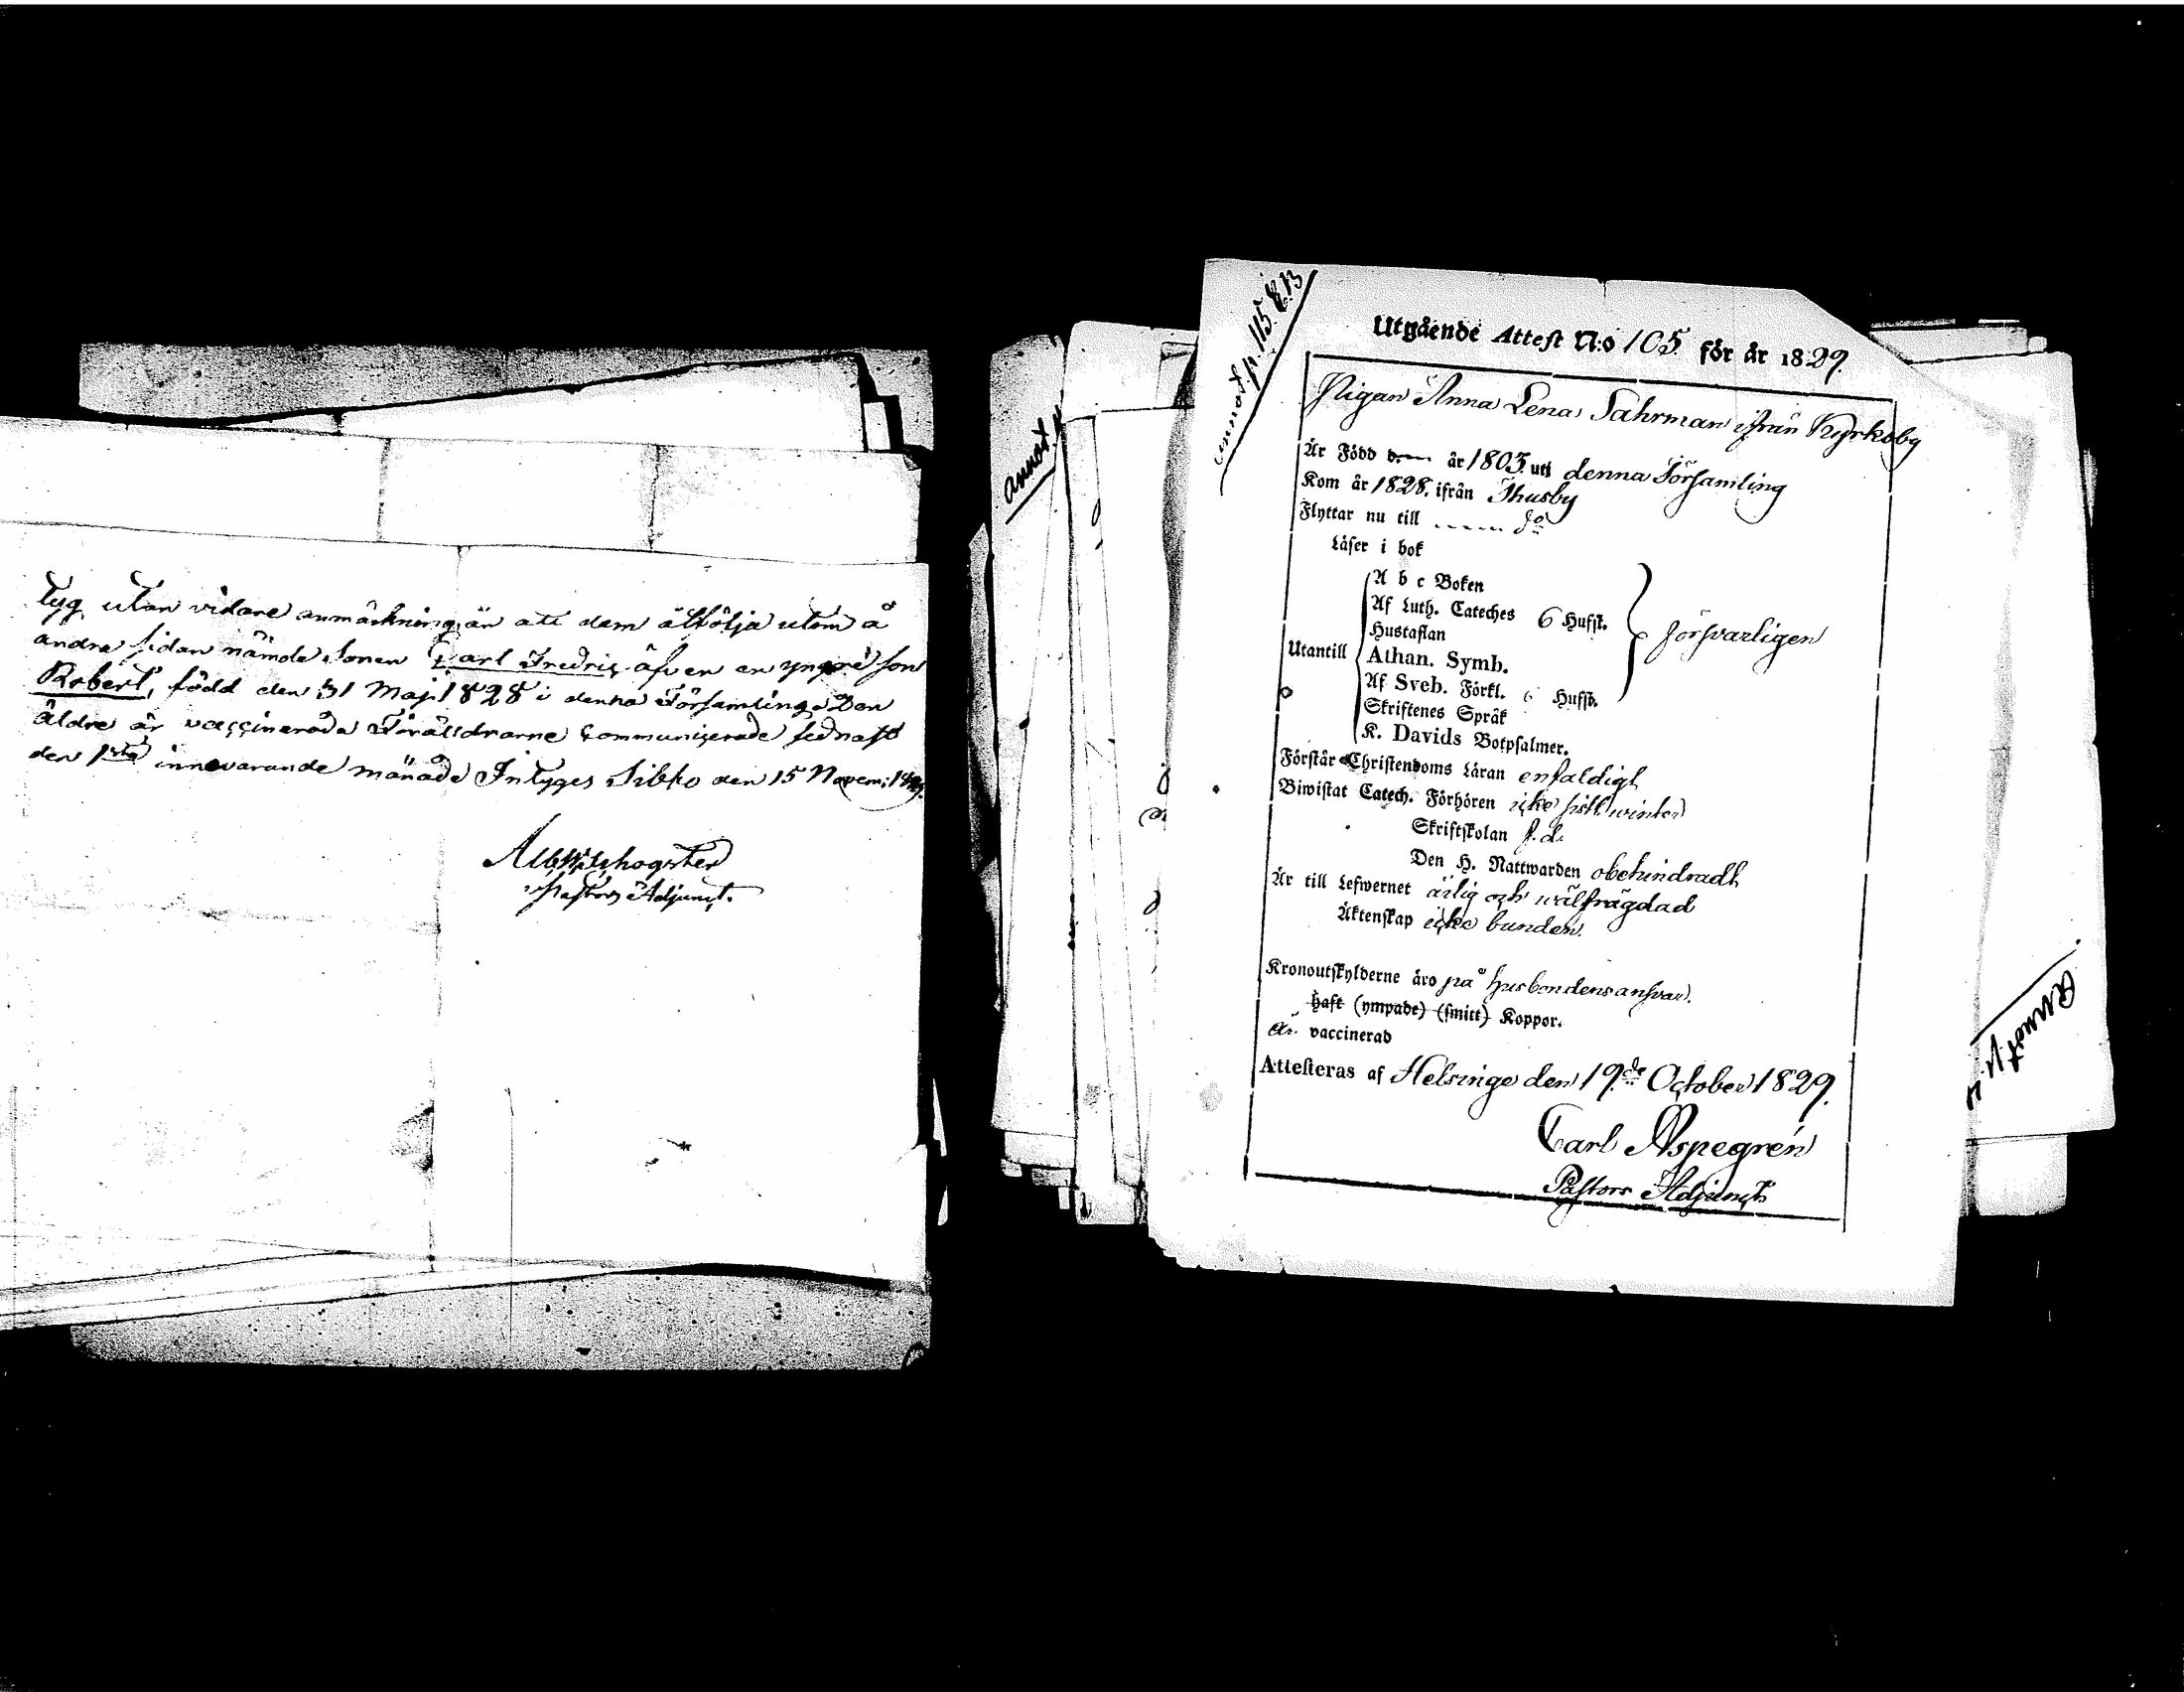 tyg utan vidare anmärkning än att dem åtfölja utom å
andra sidan nämde Sonen Carl Fredric äfven en yngre son
Robert, född den 31 Maj 1828 i denna Församling. Den
äldre är vaccinerad. Föräldrarne communicerade sednast
den 1sta innevarande månad. Intyges Sibbo den 15 Novem: 1829.
Pastors Adjunct.
annot. p.
annot. p. 115. & 13
Utgående Attest N:o 105 för år 1829.
Pigan Anna Lena Sahrman ifrån Kyrkoby
Är Född d. — år 1803. uti denna Församling
Kom år 1828. ifrån Thusby
Flyttar nu till ------ do
Läser i bok
A b c Boken
Af Luth. Cateches 6 Hufst.
Hustaflan
försvarligen
Utantill
Athan. Symb.
Af Sveb. Förkl. 6 Hufst.
Skriftenes Språk
K. Davids Botpsalmer.
Förstår Christendoms Läran enfaldigt
Biwistat Catech. Förhören icke sistl. winter
Skriftskolan f. d.
Den H. Nattwarden obehindradt
Är till Lefwernet ärlig och wälfrägdad
Äktenskap icke bunden.
Kronoutskylderne äro på husbondens answar.
haft (ympade) (smitt) Koppor.
är vaccinerad
Attesteras af Helsinge den 19de October 1829.
Carl Aspegren
Pastors Adjunct
Annot. p.